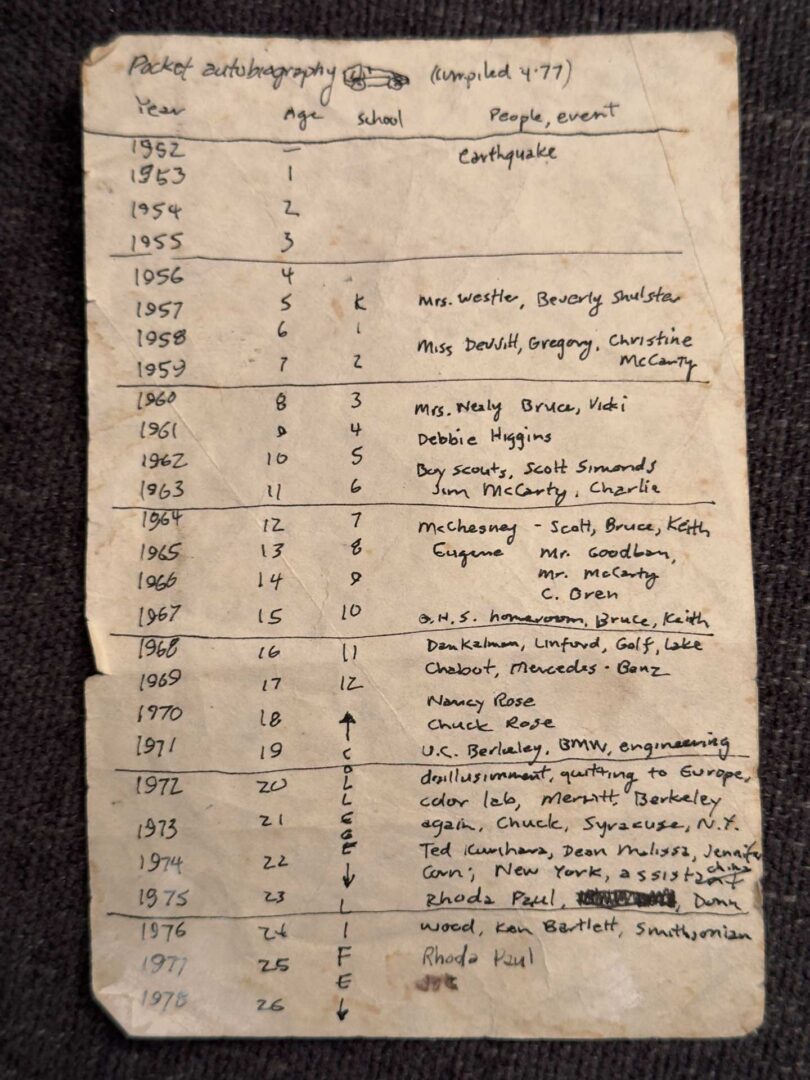 Pocket autobiography (compiled 4.77)
Year Age school People, event
1952 — earthquake
1953 1
1954 2
1955 3
1956 4
1957 5 K Mrs. Westler, Beverly Shulster
1958 6 1 Miss DeWitt, Gregory, Christine
1959 7 2 McCarty
1960 8 3 Mrs. Nealy Bruce, Vicki
1961 9 4 Debbie Higgins
1962 10 5 Boy scouts, Scott Simonds
1963 11 6 Jim McCarty, Charlie
1964 12 7 McChesney - Scott, Bruce, Keith
1965 13 8 Eugene Mr. Goodban,
1966 14 9 Mr. McCarty
C. Oren
1967 15 10 O.H.S. homeroom, Bruce, Keith
1968 16 11 Dan Kalman, Linford, Golf, Lake
1969 17 12 Chabot, Mercedes-Benz
Nancy Rose
1970 18 Chuck Rose
1971 19 COLLEGE U.C. Berkeley, BMW, engineering
disillusionment, quitting to Europe,
1972 20 color lab, Merritt, Berkeley
1973 21 again, Chuck, Syracuse, N.Y.
Ted Kurihara, Dean Melissa, Jennifer
1974 22 Corn; New York, china
1975 23 LIFE Rhoda Paul, Dunn
1976 24 wood, Ken Bartlett, Smithsonian
1977 25 Rhoda Paul
1978 26